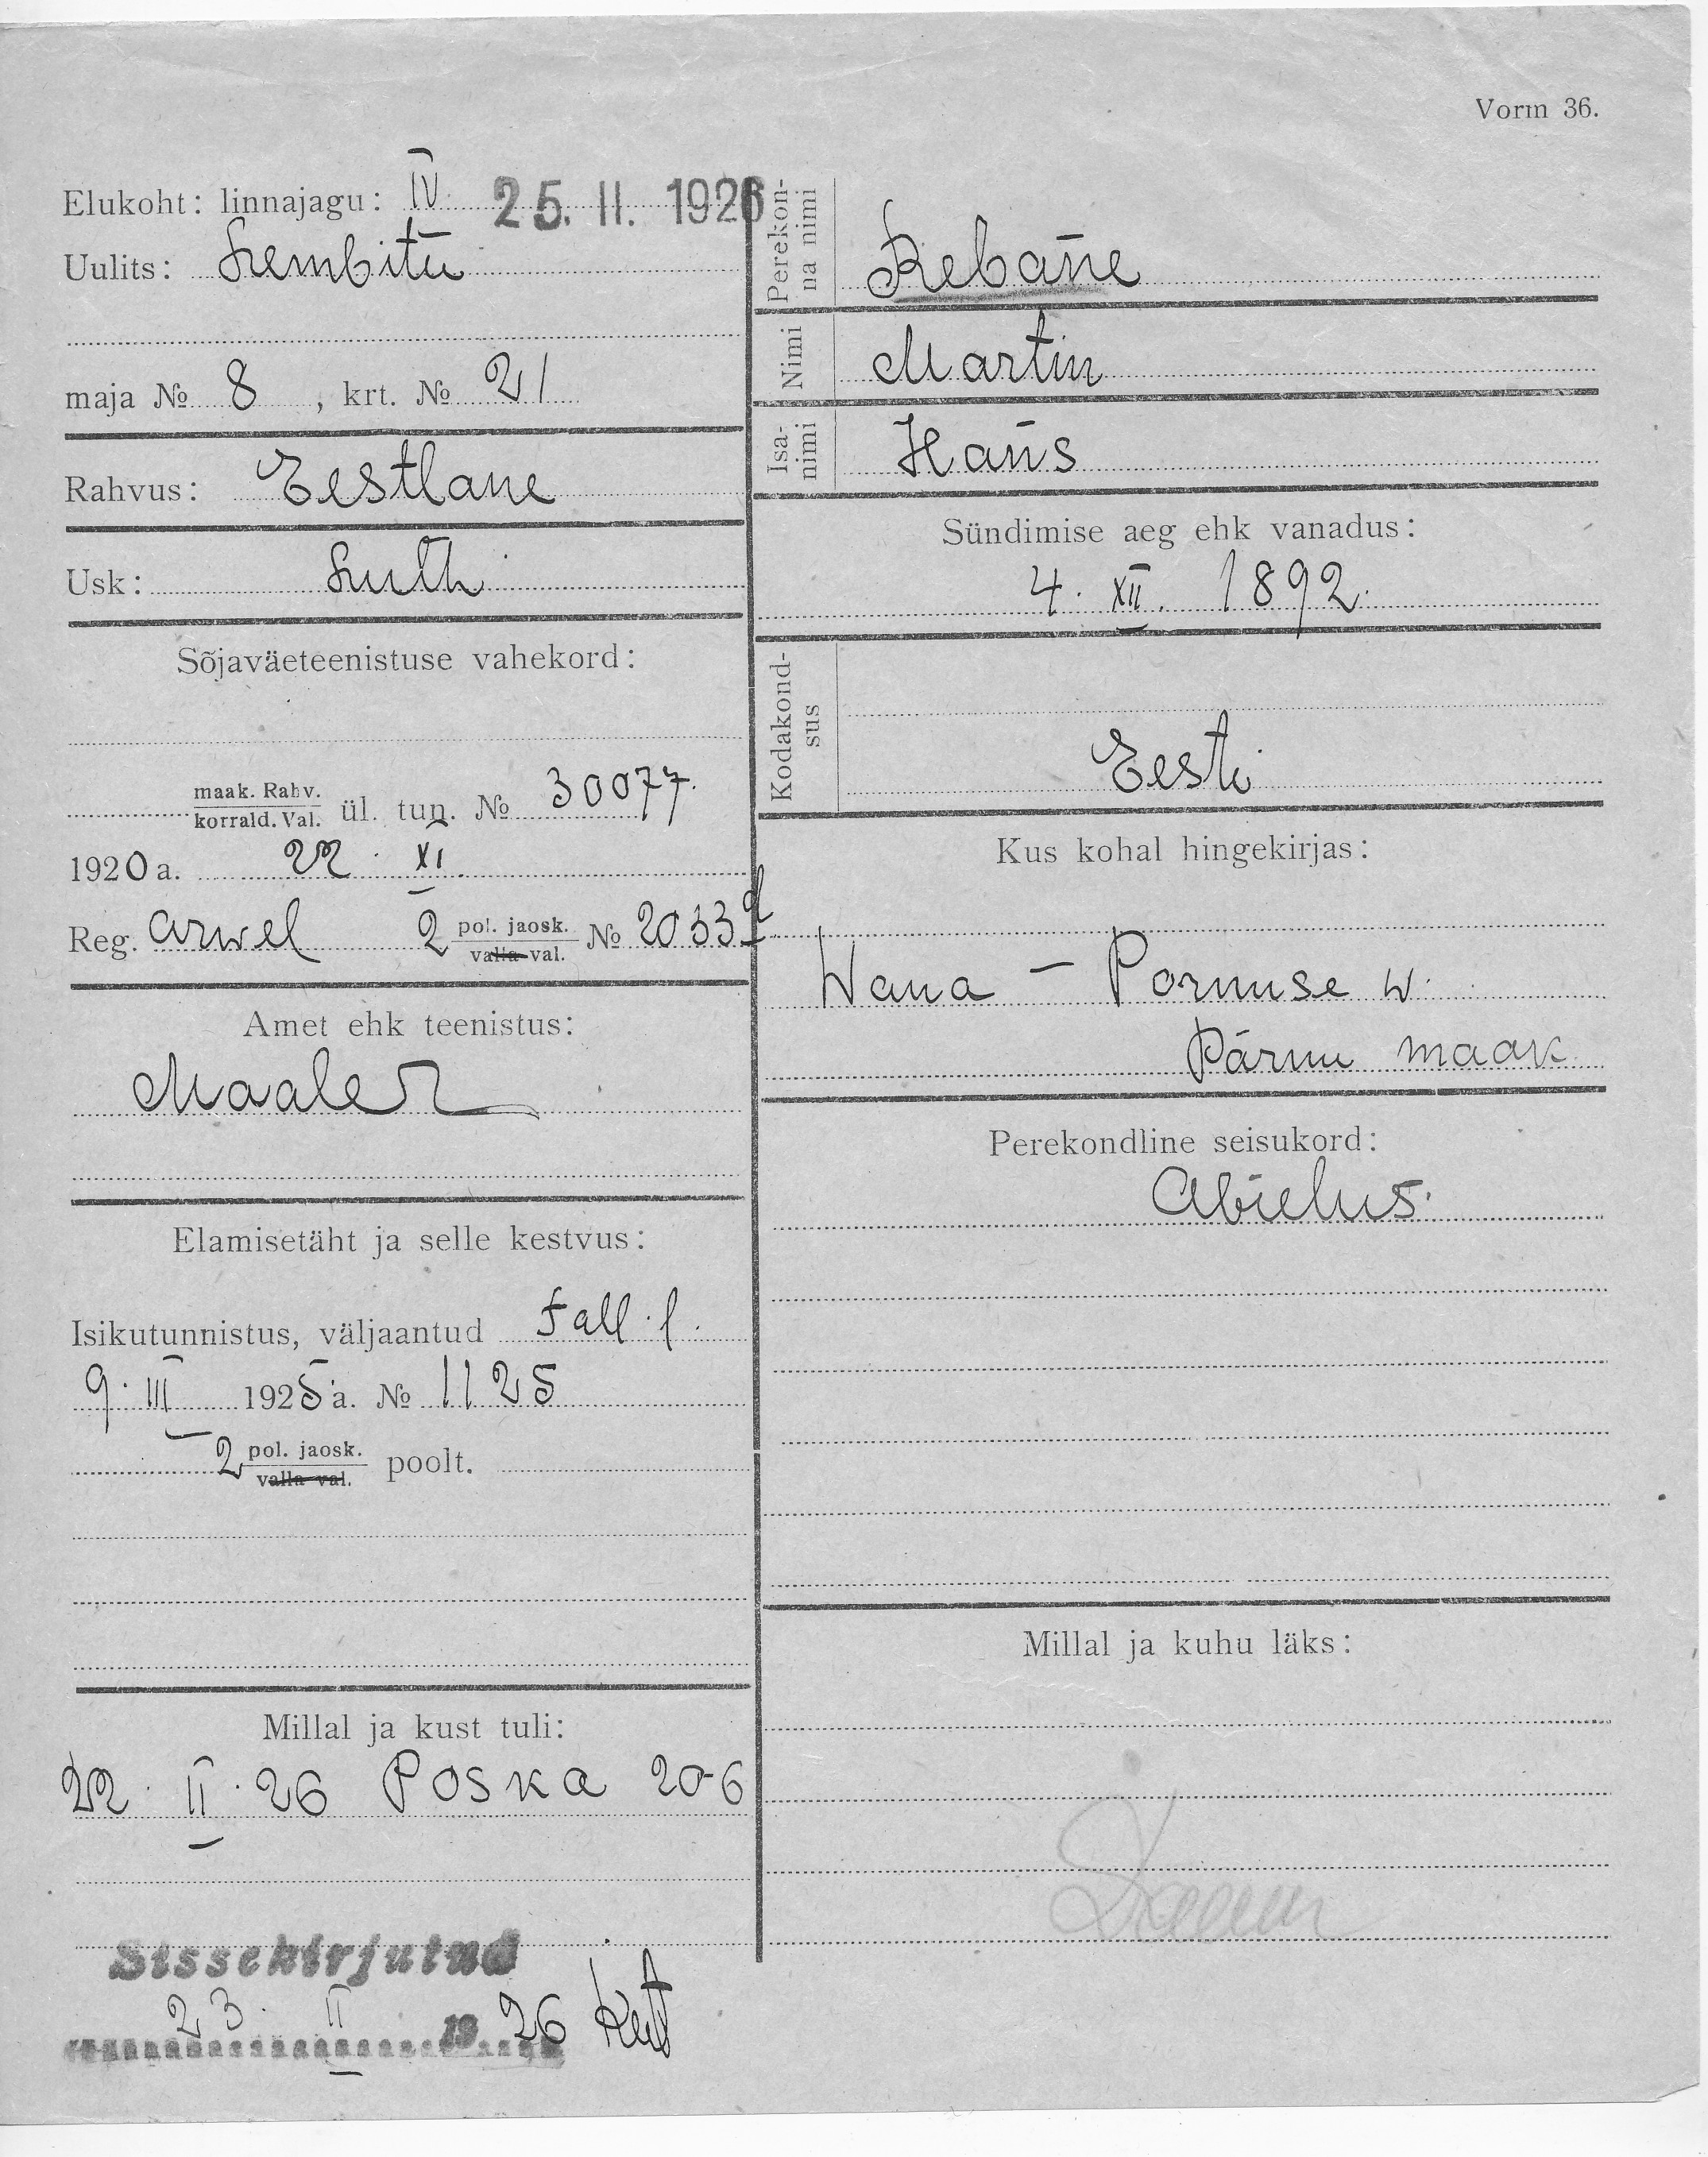 Vorm 36.
Elukoht: linnajagu: IV 25. II. 1926
Uulits: Lembitu
maja № 8, krt. № 21
Rahvus: Eestlane
Usk: Luth
Sõjaväeteenistuse vahekord:
maak. Rahv.
korrald. Val. ül. tun. № 30077.
1920 a. 22. XI.
Reg. arwel 2 pol. jaosk. №
valla val.
Amet ehk teenistus:
Maaler
Elamisetäht ja selle kestvus:
Isikutunnistus, väljaantud Tall. l.
9. III 1925 a. № 1125
2 pol. jaosk. poolt.
valla val.
Millal ja kust tuli:
22. II. 26 Poska 20-6
Sissekirjutud
23. II 1926
Perekon-
na nimi
Rebane
Nimi
Martin
Isa-
nimi
Hans
Sündimise aeg ehk vanadus:
4. XII. 1892.
Kodakond-
sus
Eesti
Kus kohal hingekirjas:
Wana - Pornuse w.
Pärnu maak
Perekondline seisukord:
Abielus.
Millal ja kuhu läks: